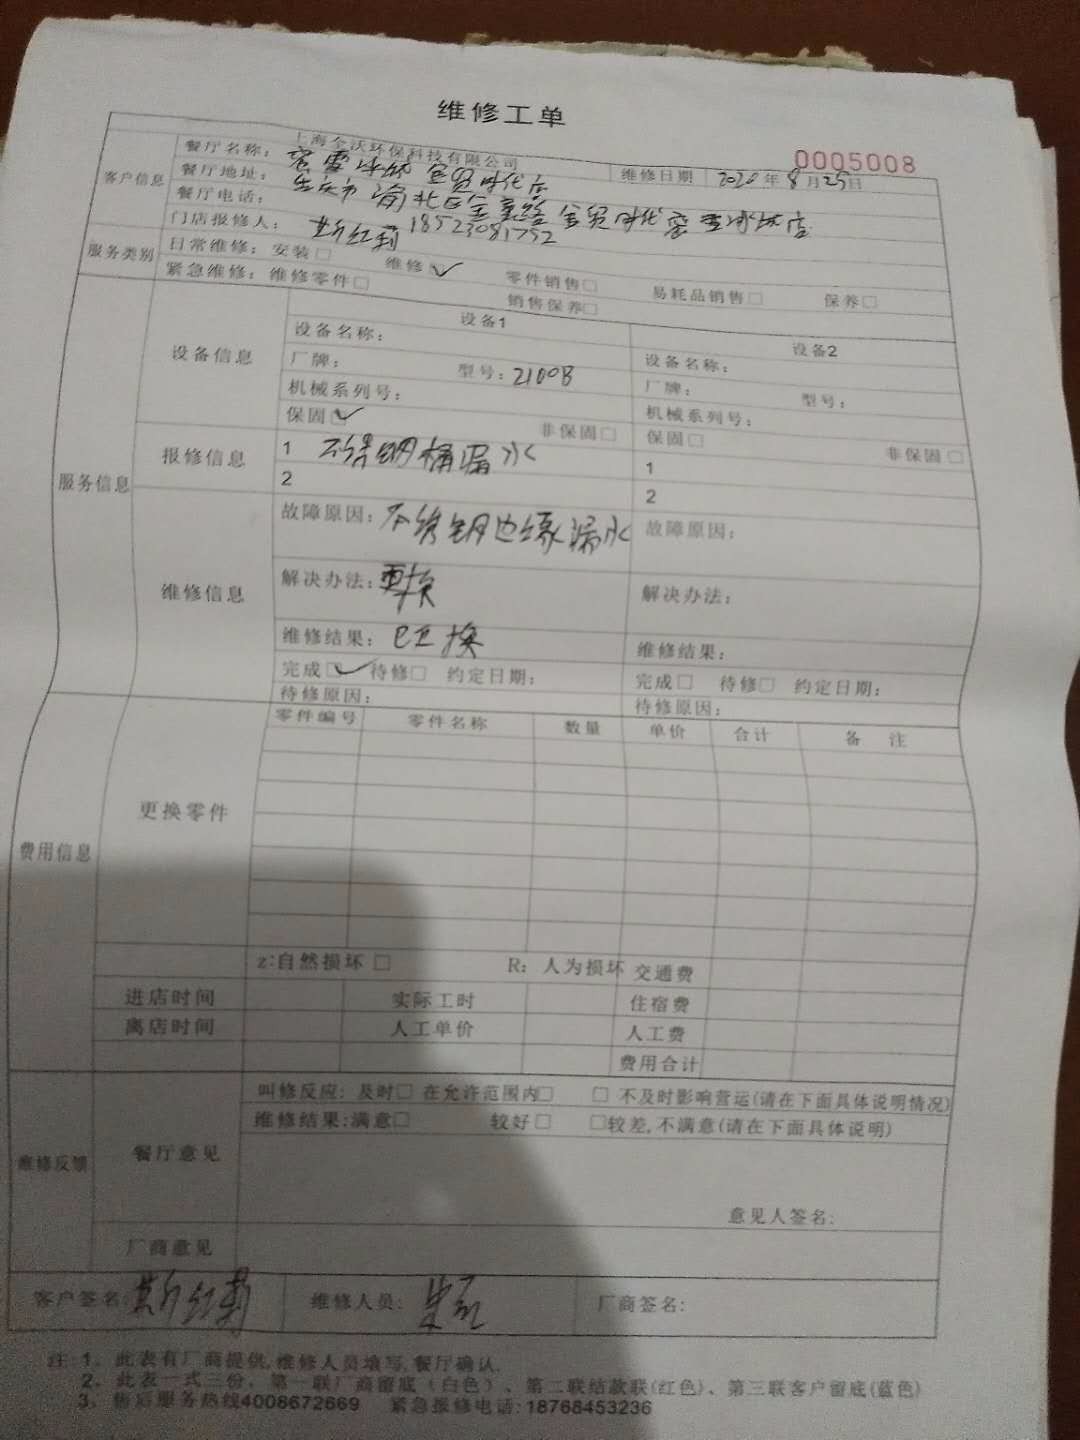 维修工单
上海全沃环保科技有限公司
0005008
客户信息
餐厅名称：蜜雪冰城金贸时代店
维修日期 2020年8月25日
餐厅地址：重庆市渝北区金童路金贸时代蜜雪冰城店
餐厅电话：18523081752
门店报修人：靳红莉
服务类别
日常维修：安装□ 维修□✓ 零件销售□ 易耗品销售□ 保养□
紧急维修：维修零件□ 销售保养□
服务信息
设备信息
设备1 设备2
设备名称： 设备名称：
厂牌： 型号：2100B 厂牌： 型号：
机械系列号： 机械系列号：
保固□✓ 非保固□ 保固□ 非保固□
报修信息
1 不锈钢桶漏水 1
2 2
维修信息
故障原因：不锈钢边缘漏水 故障原因：
解决办法：更换 解决办法：
维修结果：已更换 维修结果：
完成□✓ 待修□ 约定日期： 完成□ 待修□ 约定日期：
待修原因： 待修原因：
费用信息
更换零件
零件编号 零件名称 数量 单价 合计 备 注
z:自然损坏 □ R：人为损坏 交通费
进店时间 实际工时 住宿费
离店时间 人工单价 人工费
费用合计
维修反馈
餐厅意见
叫修反应：及时□ 在允许范围内□ □ 不及时影响营运(请在下面具体说明情况)
维修结果:满意□ 较好□ □较差,不满意(请在下面具体说明)
意见人签名:
厂商意见
客户签名:靳红莉 维修人员: 厂商签名:
注:1、此表有厂商提供,维修人员填写,餐厅确认.
2、此表一式三份，第一联厂商留底（白色）、第二联结款联(红色)、第三联客户留底(蓝色)
3、售后服务热线4008672669 紧急报修电话:18768453236